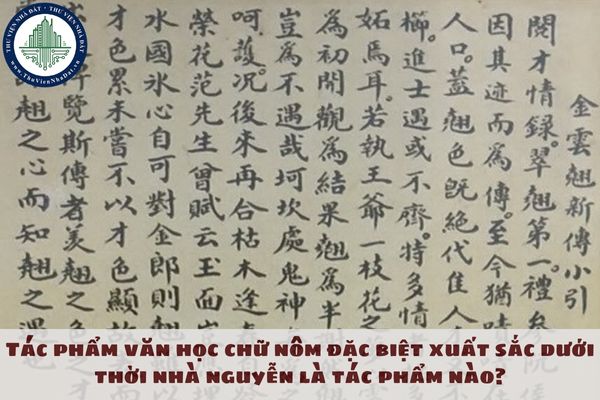 THƯ VIỆN NHÀ ĐẤT • THƯ VIỆN NHÀ ĐẤT
www.ThuVienNhaDat.vn
金雲翹新傳小引
閱才情錄。翠翹第一。禮叅
因其迹而爲傳。至今猶嘖
人口。蓋翹色旣絶代佳人
櫛。進士遇或不齊。特多情
妬焉耳。若執王爺一枝花之
爲初閱觀爲結果翹爲半
豈爲不遇哉坷坎處鬼神
呵護。况後來再合枯木逢
榮花范先生曾賦云玉面
水國氷心自可對金郎則翹
才色累未嘗不以才色顯故
覽斯傳者羡翹之
翹之心而知翹之遇
Tác phẩm văn học chữ nôm đặc biệt xuất sắc dưới
thời nhà nguyễn là tác phẩm nào?